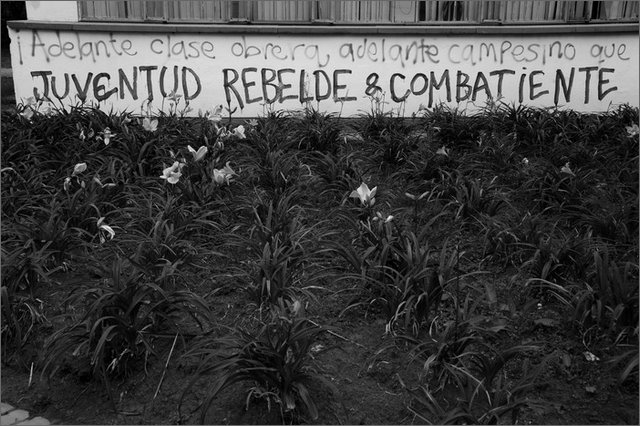 ¡Adelante clase obrera, adelante campesino que
JUVENTUD REBELDE & COMBATiENTE